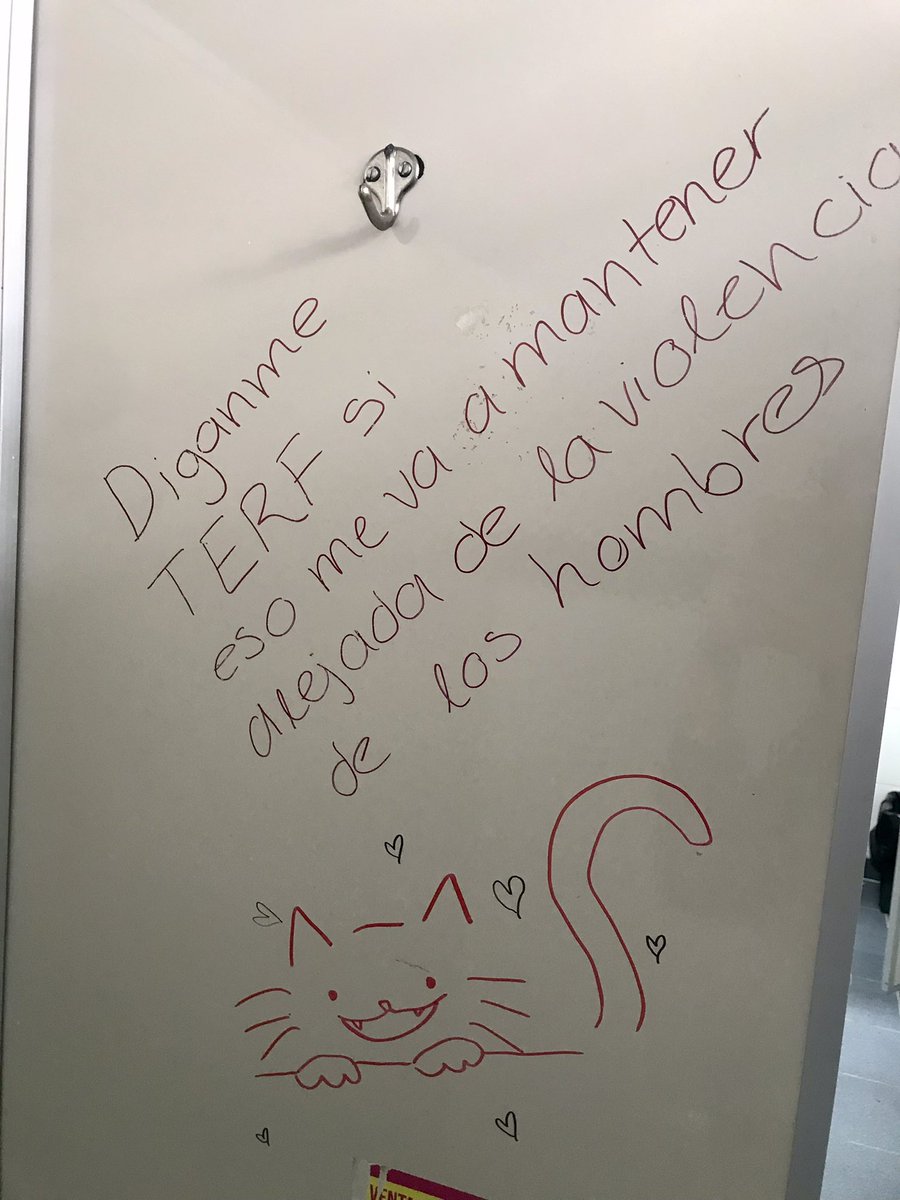 Diganme
TERF si
eso me va a mantener
alejada de la violencia
de los hombres
VENT